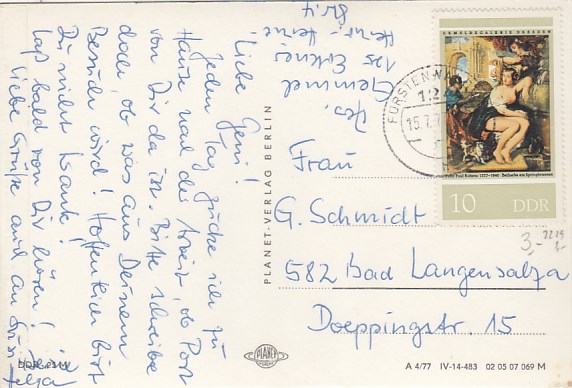 Liebe Geri!
Jeden Tag gucke ich zu
Hause nach der Arbeit, ob Post
von Dir da ist. Bitte schreibe
doch, ob was aus Deinem
Besuch wird! Hoffentlich bist
Du nicht krank!
Laß bald von Dir hören!
Liebe Grüße auch an
Abs.
Gemmel
125 Erkner
PLANET-VERLAG BERLIN
GEMÄLDEGALERIE DRESDEN
Peter Paul Rubens 1577-1640 Bathseba am Springbrunnen
10 DDR
FÜRSTENW
15.7.7
Frau
G. Schmidt
582 Bad Langensalza
Doeppingstr. 15
3,-
PLANET
A 4/77 IV-14-483 02 05 07 069 M